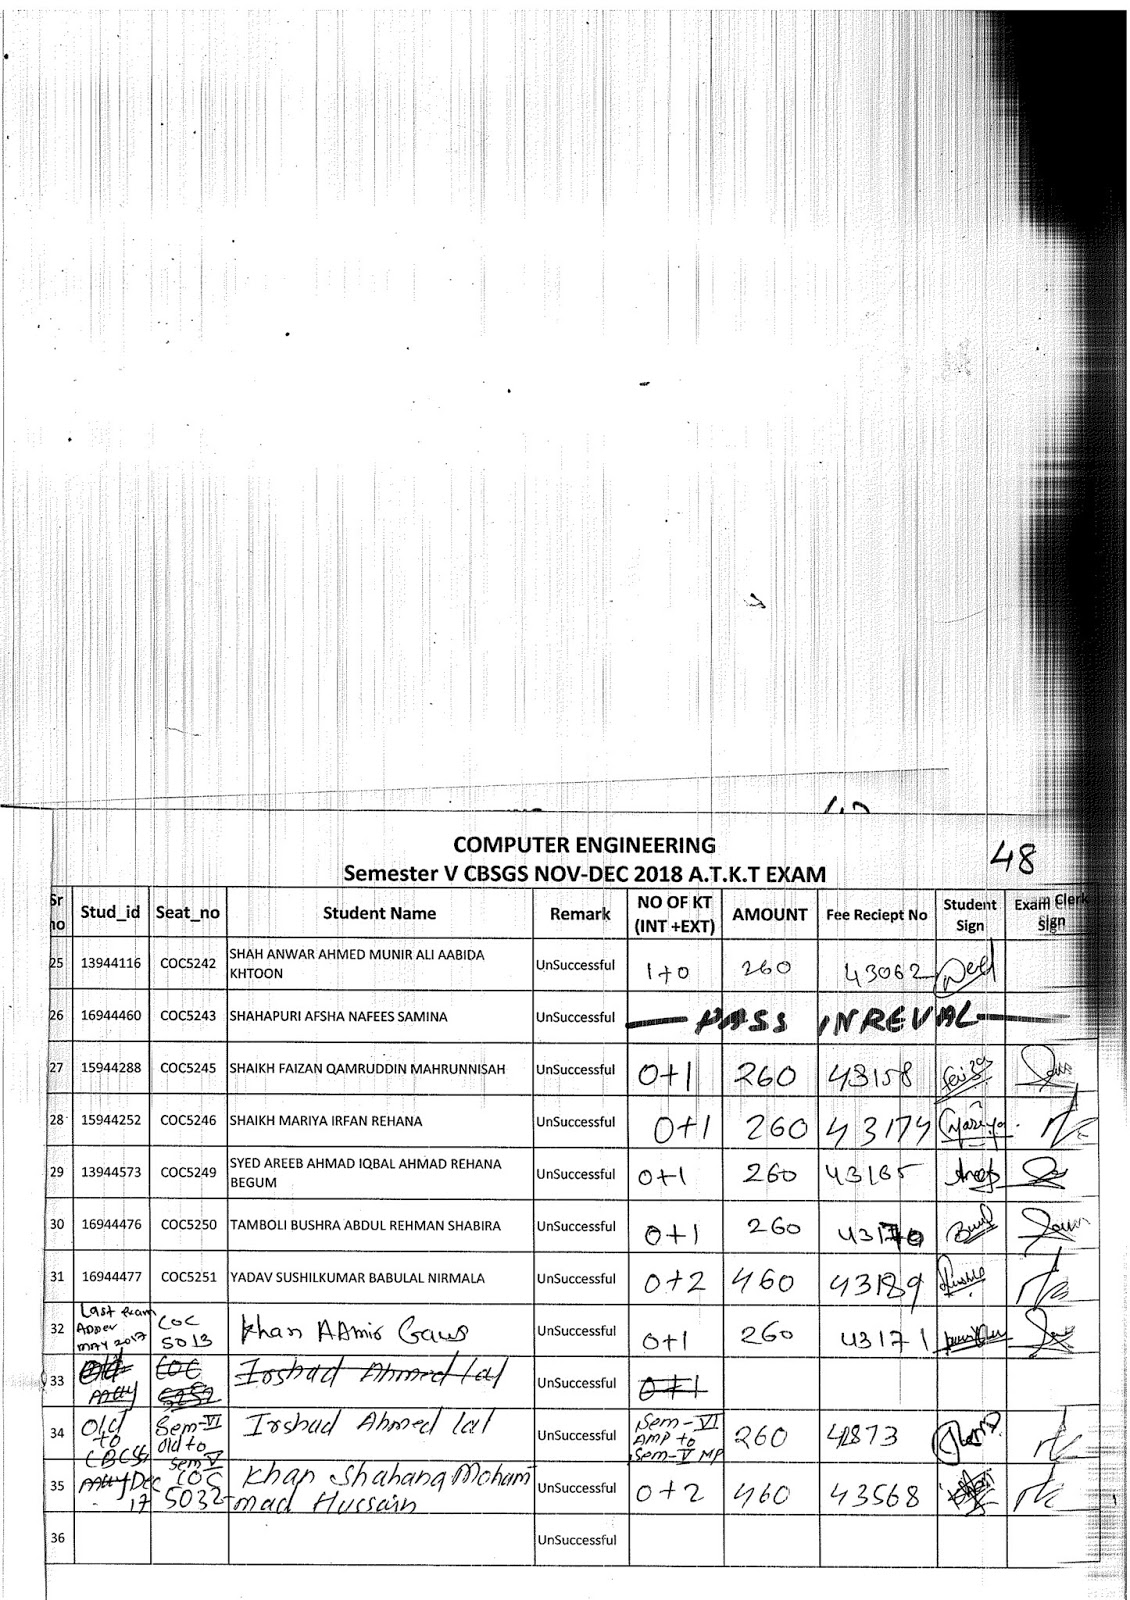 COMPUTER ENGINEERING
48
Semester V CBSGS NOV-DEC 2018 A.T.K.T EXAM
Sr no Stud_id Seat_no Student Name Remark NO OF KT (INT +EXT) AMOUNT Fee Reciept No Student Sign Exam Clerk Sign
25 13944116 COC5242 SHAH ANWAR AHMED MUNIR ALI AABIDA KHTOON UnSuccessful 1+0 260 43062
26 16944460 COC5243 SHAHAPURI AFSHA NAFEES SAMINA UnSuccessful PASS IN REVAL
27 15944288 COC5245 SHAIKH FAIZAN QAMRUDDIN MAHRUNNISAH UnSuccessful 0+1 260 43158
28 15944252 COC5246 SHAIKH MARIYA IRFAN REHANA UnSuccessful 0+1 260 43174
29 13944573 COC5249 SYED AREEB AHMAD IQBAL AHMAD REHANA BEGUM UnSuccessful 0+1 260 43165
30 16944476 COC5250 TAMBOLI BUSHRA ABDUL REHMAN SHABIRA UnSuccessful 0+1 260 43170
31 16944477 COC5251 YADAV SUSHILKUMAR BABULAL NIRMALA UnSuccessful 0+2 460 43189
32 Last exam MAY 2017 COC 5013 Khan AAmir Gaus UnSuccessful 0+1 260 43171
33 Old COC 5252 Irshad Ahmed lal UnSuccessful 0+1
34 Old to CBCGS Sem-VI old to Sem-V Irshad Ahmed lal UnSuccessful Sem-VI AMP to Sem-V MP 260
35 Dec 17 COC 5032 Khan Shahana Mohammad Hussain UnSuccessful 0+2 460 43568
36 UnSuccessful